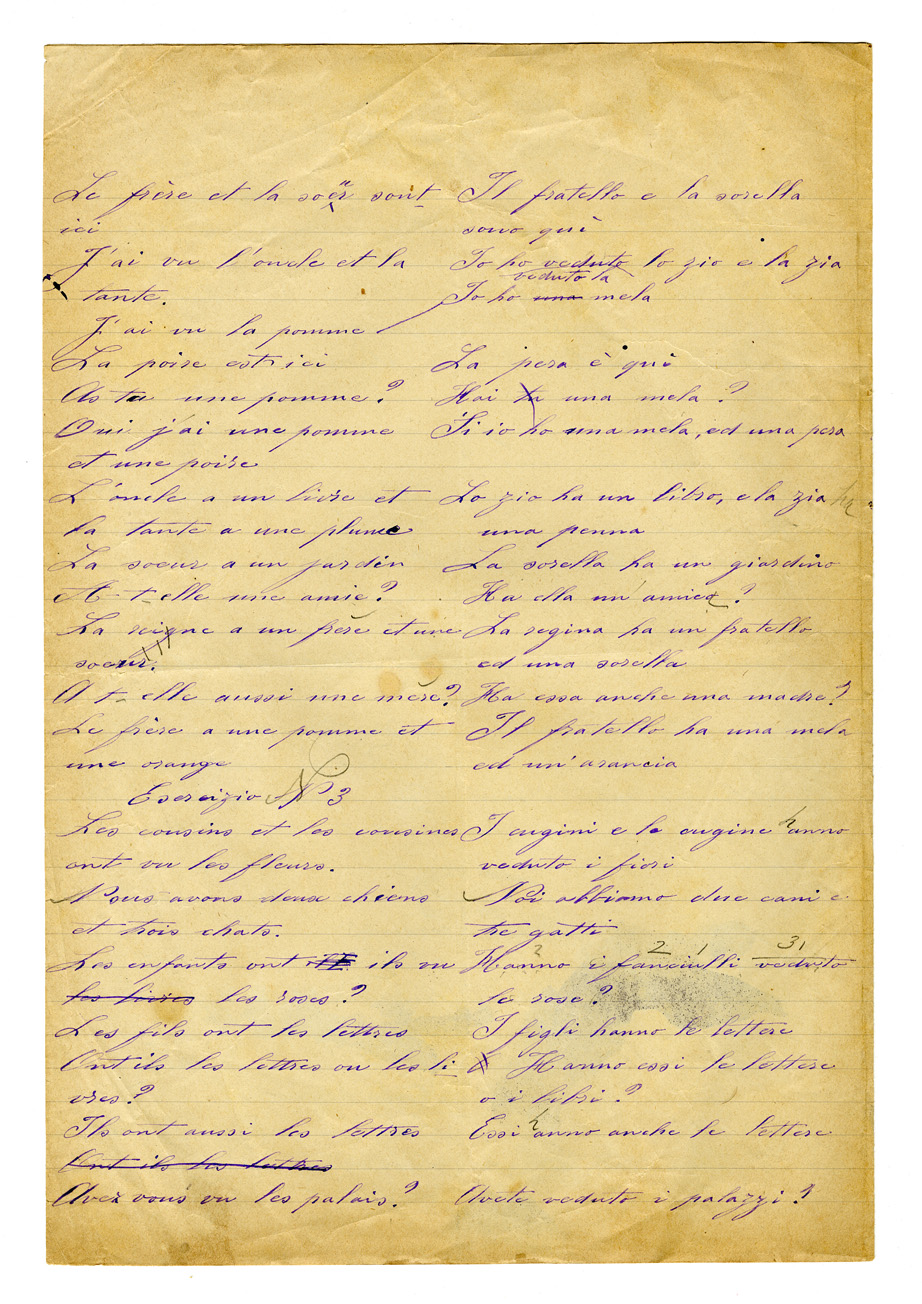 Le frère et la soeur sont
ici
J'ai vu l'oncle et la
tante.
J'ai vu la pomme
La poire est ici
As tu une pomme?
Oui j'ai une pomme
et une poire
L'oncle a un livre et
la tante a une plume
La soeur a un jardin
A-t-elle une amie?
La reigne a un frère et une
soeur.
A t-elle aussi une mère?
Le frère a une pomme et
une orange
Esercizio No 3
Les cousins et les cousines
ont vu les fleurs.
Nous avons deux chiens
et trois chats.
Les enfants ont ils vu
les livres les roses?
Les fils ont les lettres
Ont ils les lettres ou les li
vres?
Ils ont aussi les lettres
Ont ils les lettres
Avez vous vu les palais?
Il fratello e la sorella
sono quì
Io ho veduto lo zio e la zia
veduto la
Io ho una mela
La pera è quì
Hai tu una mela?
Si io ho una mela, ed una pera
Lo zio ha un libro, e la zia ha
una penna
La sorella ha un giardino
Ha ella un'amica?
La regina ha un fratello
ed una sorella
Ha essa anche una madre?
Il fratello ha una mela
ed un'arancia
I cugini e le cugine hanno
veduto i fiori
Noi abbiamo due cani e
tre gatti
2 2 1 31
Hanno i fanciulli veduto
le rose?
I figli hanno le lettere
Hanno essi le lettere
o i libri?
Essi hanno anche le lettere
Avete veduto i palazzi?